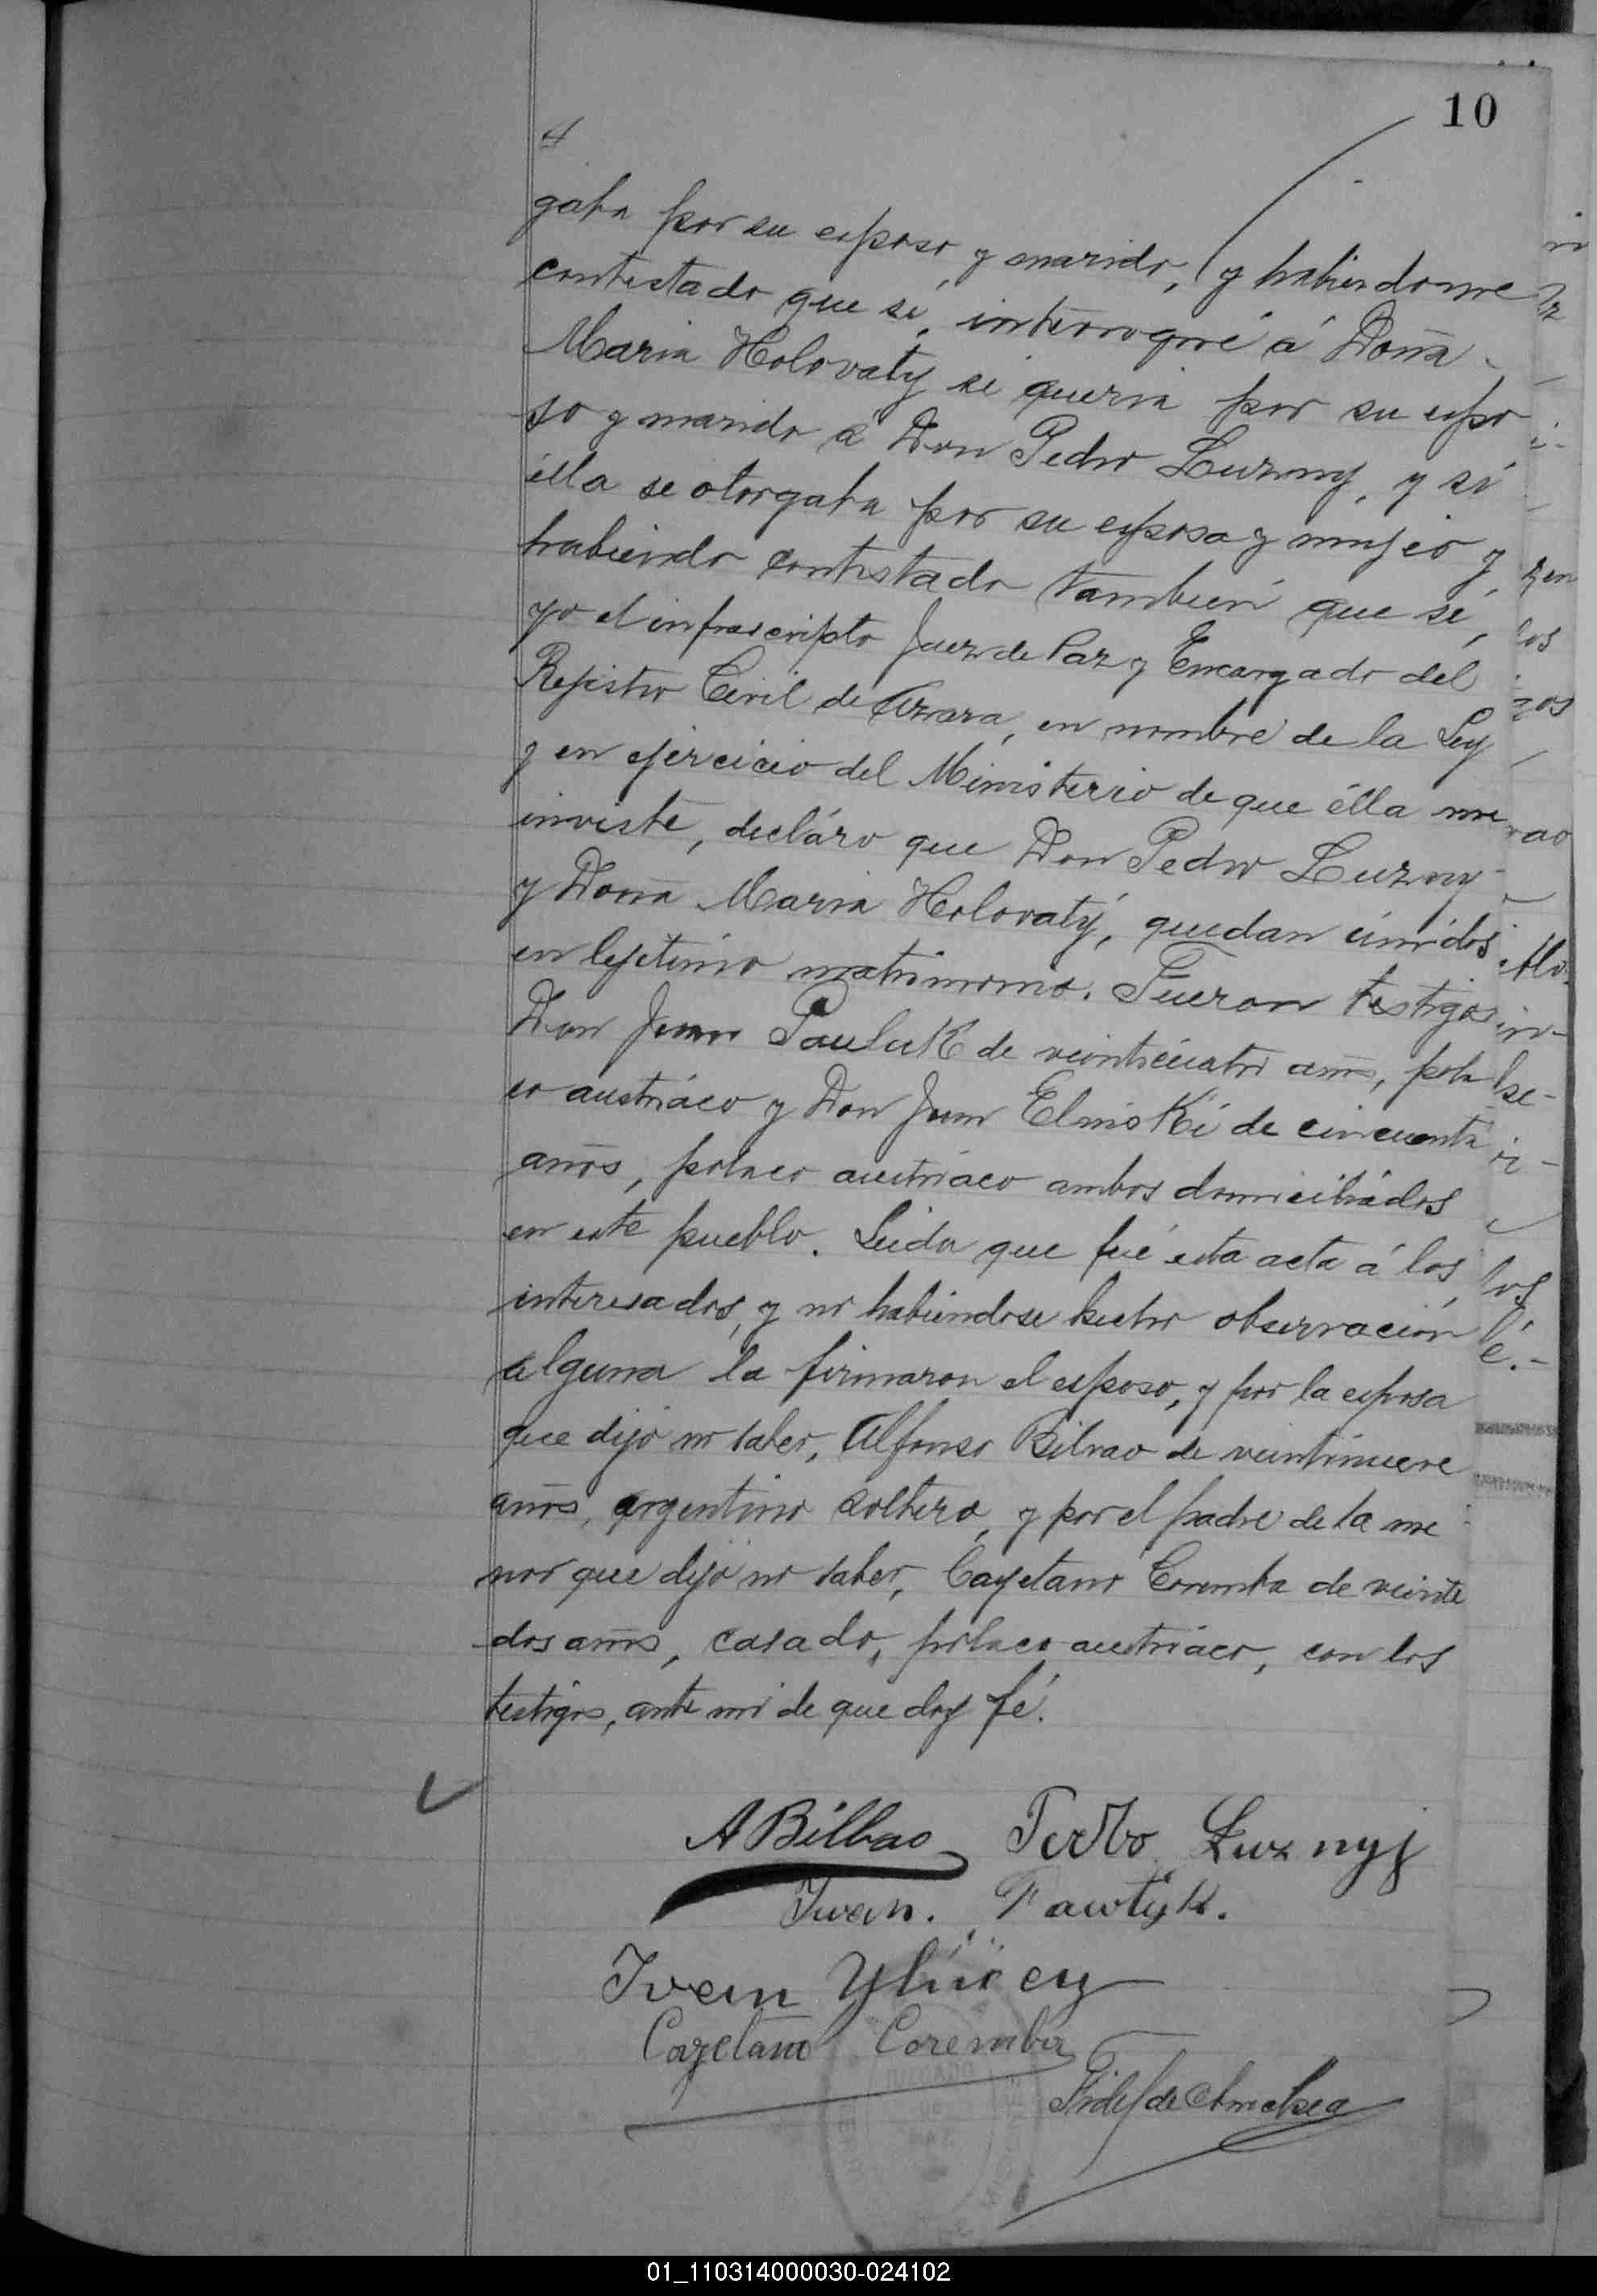 10
4
gaba por su esposo y marido, y habiendome
contestado que sí, interrogué á Doña
Maria Holovaty si queria por su espo
so y marido á Don Pedro Luzny, y si
élla se otorgaba por su esposa y mujer y
habiendo contestado también que sí,
yo el infrascripto Juez de Paz y Encargado del
Registro Civil de Azara, en nombre de la Ley
y en ejercicio del Ministerio de que élla me
inviste, decláro que Don Pedro Luzny
y Doña Maria Holovaty, quedan únidos
en lejitimo matrimonio. Fueron testigos
Don Juan Pauluk de veinticuatro años, pola
co austriáco y Don Juan Elinski de cincuenta
años, polaco austriáco ambos domiciliádos
en este pueblo. Leida que fué esta acta á los
interesados, y no habiéndose hecho observación
alguna la firmaron el esposo, y por la esposa
que dijo no saber, Alfonso Bilbao de veintinueve
años, argentino soltero, y por el padre de la me
nor que dijo no saber, Cayetano Coremba de veinte
dos años, casado, polaco austriáco, con los
testigos, ante mi de que doy fé.
A Bilbao Petro Luznyj
Iwan. Pawlyk.
Ivan
Cayetano Coremba
01_110314000030-024102